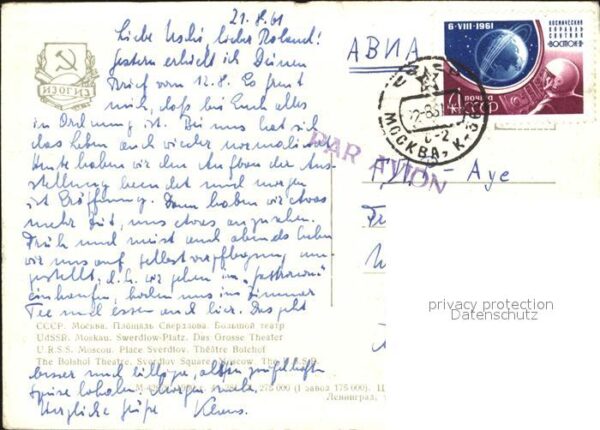 21.8.61
Liebe Uschi, lieber Roland!
Gestern erhielt ich Deinen
Brief vom 12.8. Es freut
mich, daß bei Euch alles
in Ordnung ist. Bei uns hat sich
das Leben auch wieder normalisiert.
Heute haben wir den Aufbau der Aus-
stellung beendet und morgen
ist Eröffnung. Dann haben wir etwas
mehr Zeit, uns etwas anzusehen.
Früh und meist auch abends haben
wir uns auf Selbstverpflegung um-
gestellt, d.h. wir gehen im "Gastronom"
einkaufen, holen uns ins Zimmer
Tee und essen auch hier. Das geht
besser und billiger, als in
Herzliche Grüße Klaus.
ИЗОГИЗ
СССР. Москва. Площадь Свердлова. Большой театр
UdSSR. Moskau. Swerdlow-Platz. Das Grosse Theater
U.R.S.S. Moscou. Place Sverdlov. Théâtre Bolchoï
The Bolshoi Theatre. Sverdlov Square. Moscow. The U.S.S.R.
275 000 (1 завод 175 000).
Ленинград,
АВИА
PAR AVION
6-VIII-1961
КОСМИЧЕСКИЙ
КОРАБЛЬ
СПУТНИК
"ВОСТОК-2"
ПОЧТА
МОСКВА, К-
Aue
privacy protection
Datenschutz